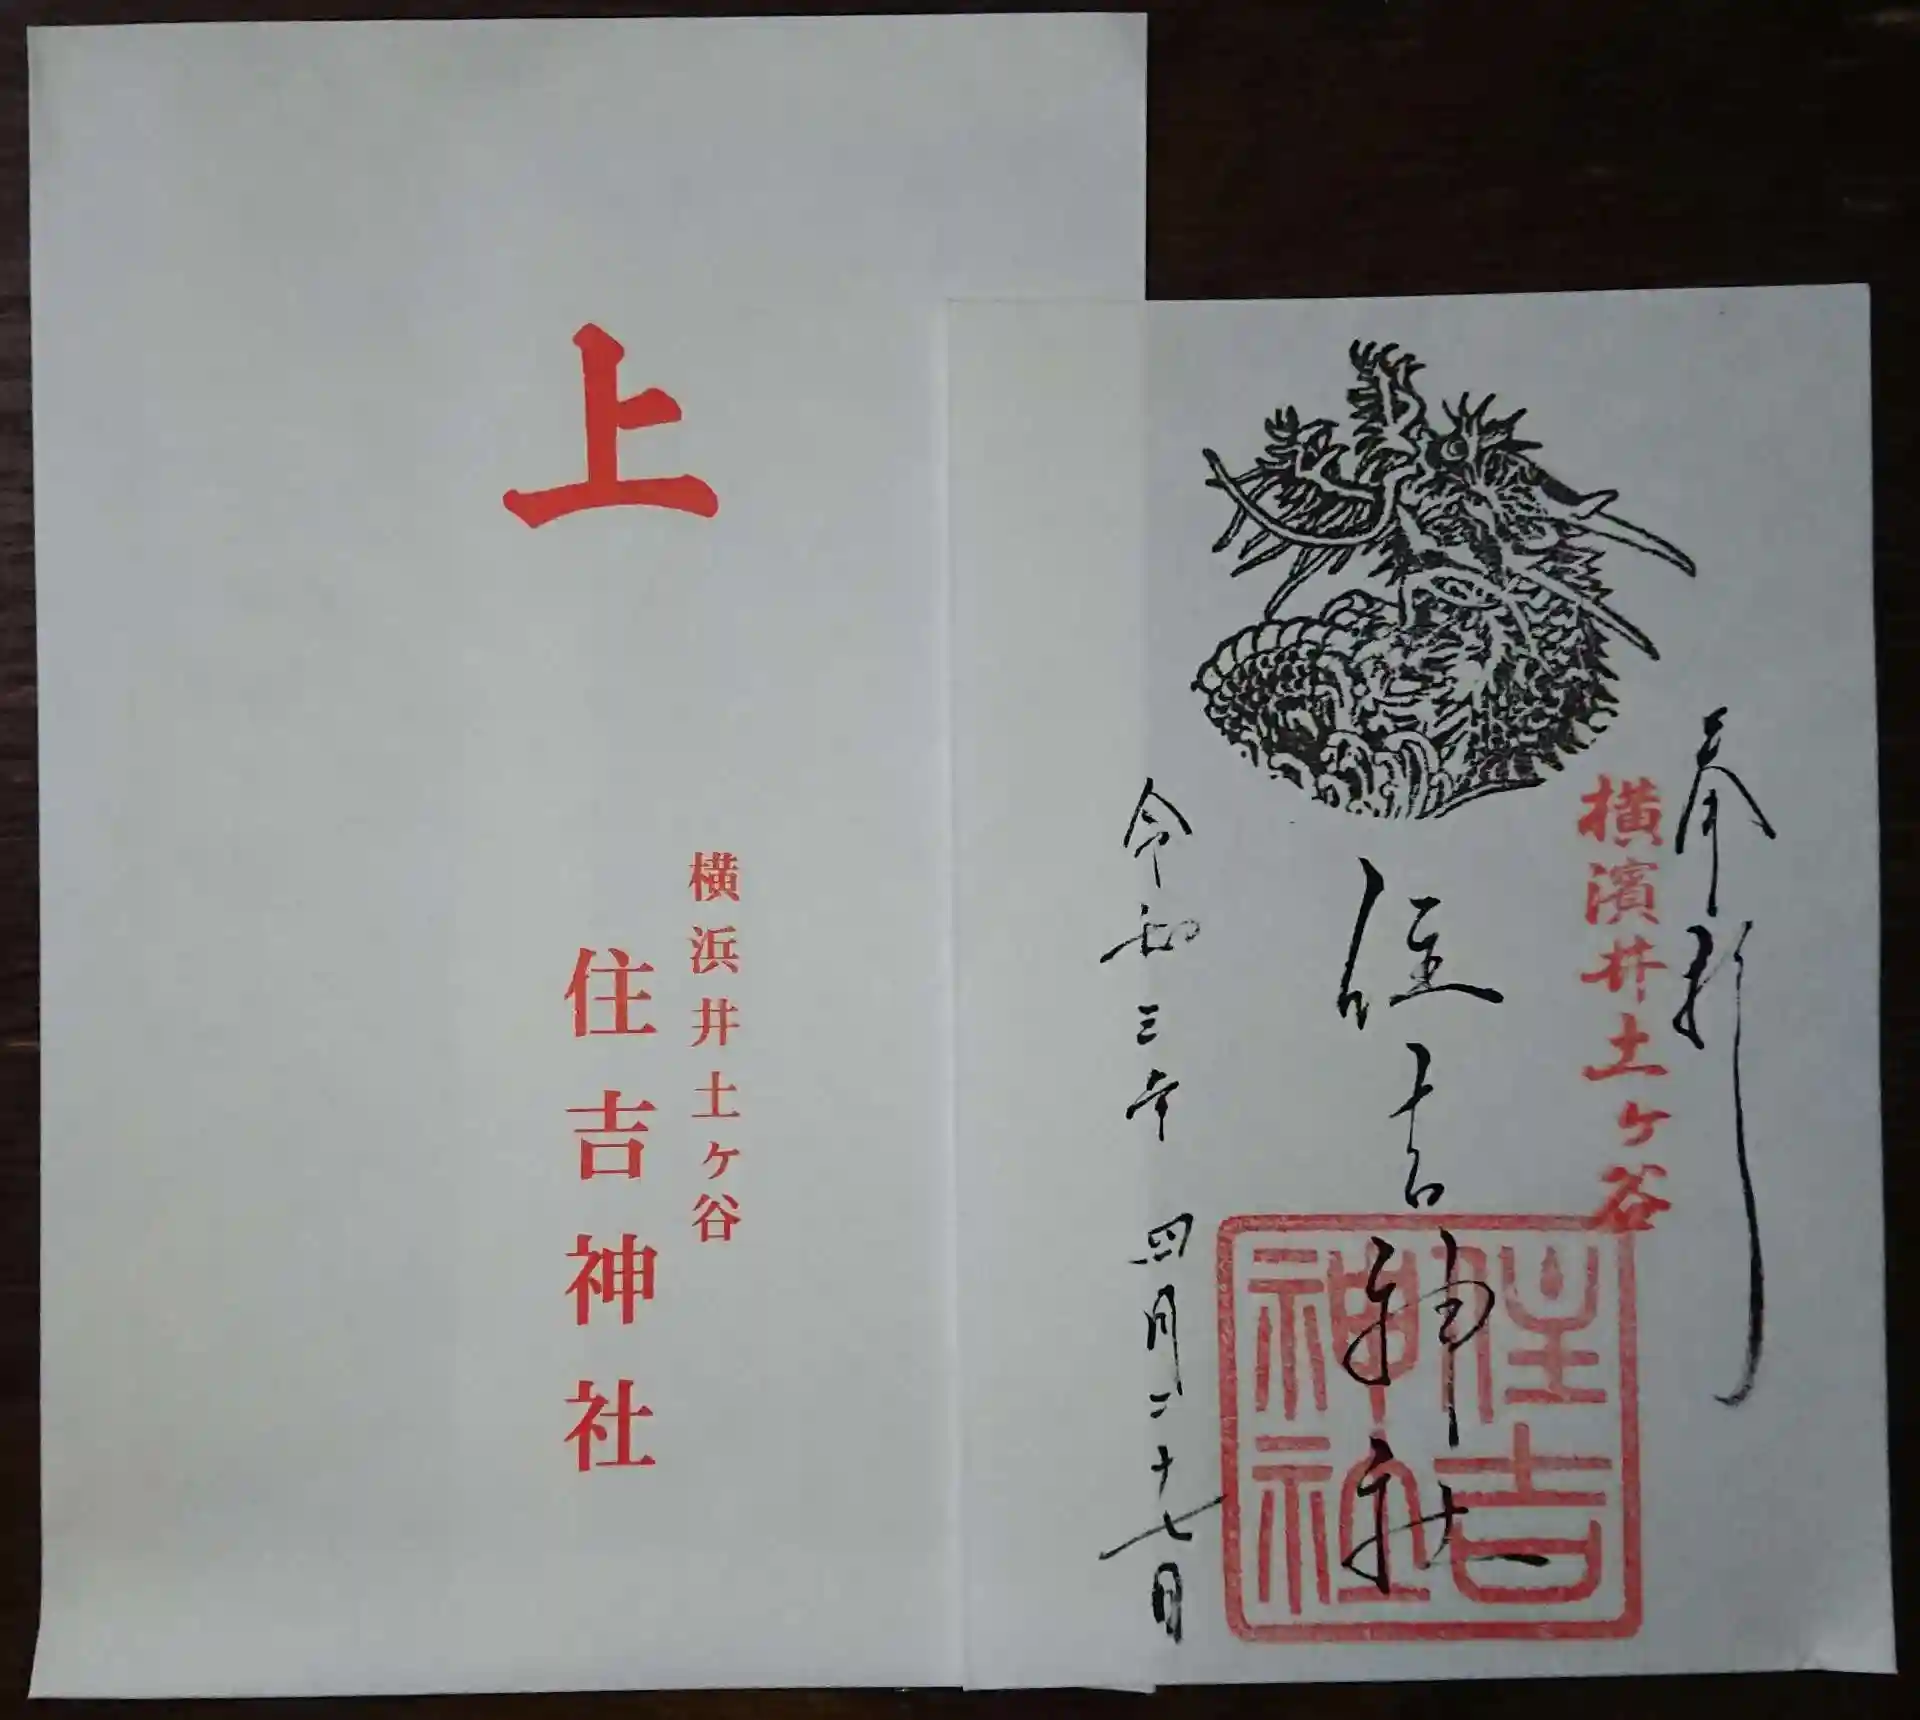 上
横浜井土ヶ谷
住吉神社
奉拝
横濱井土ヶ谷
住吉神社
住吉
神社
令和三年四月二十七日